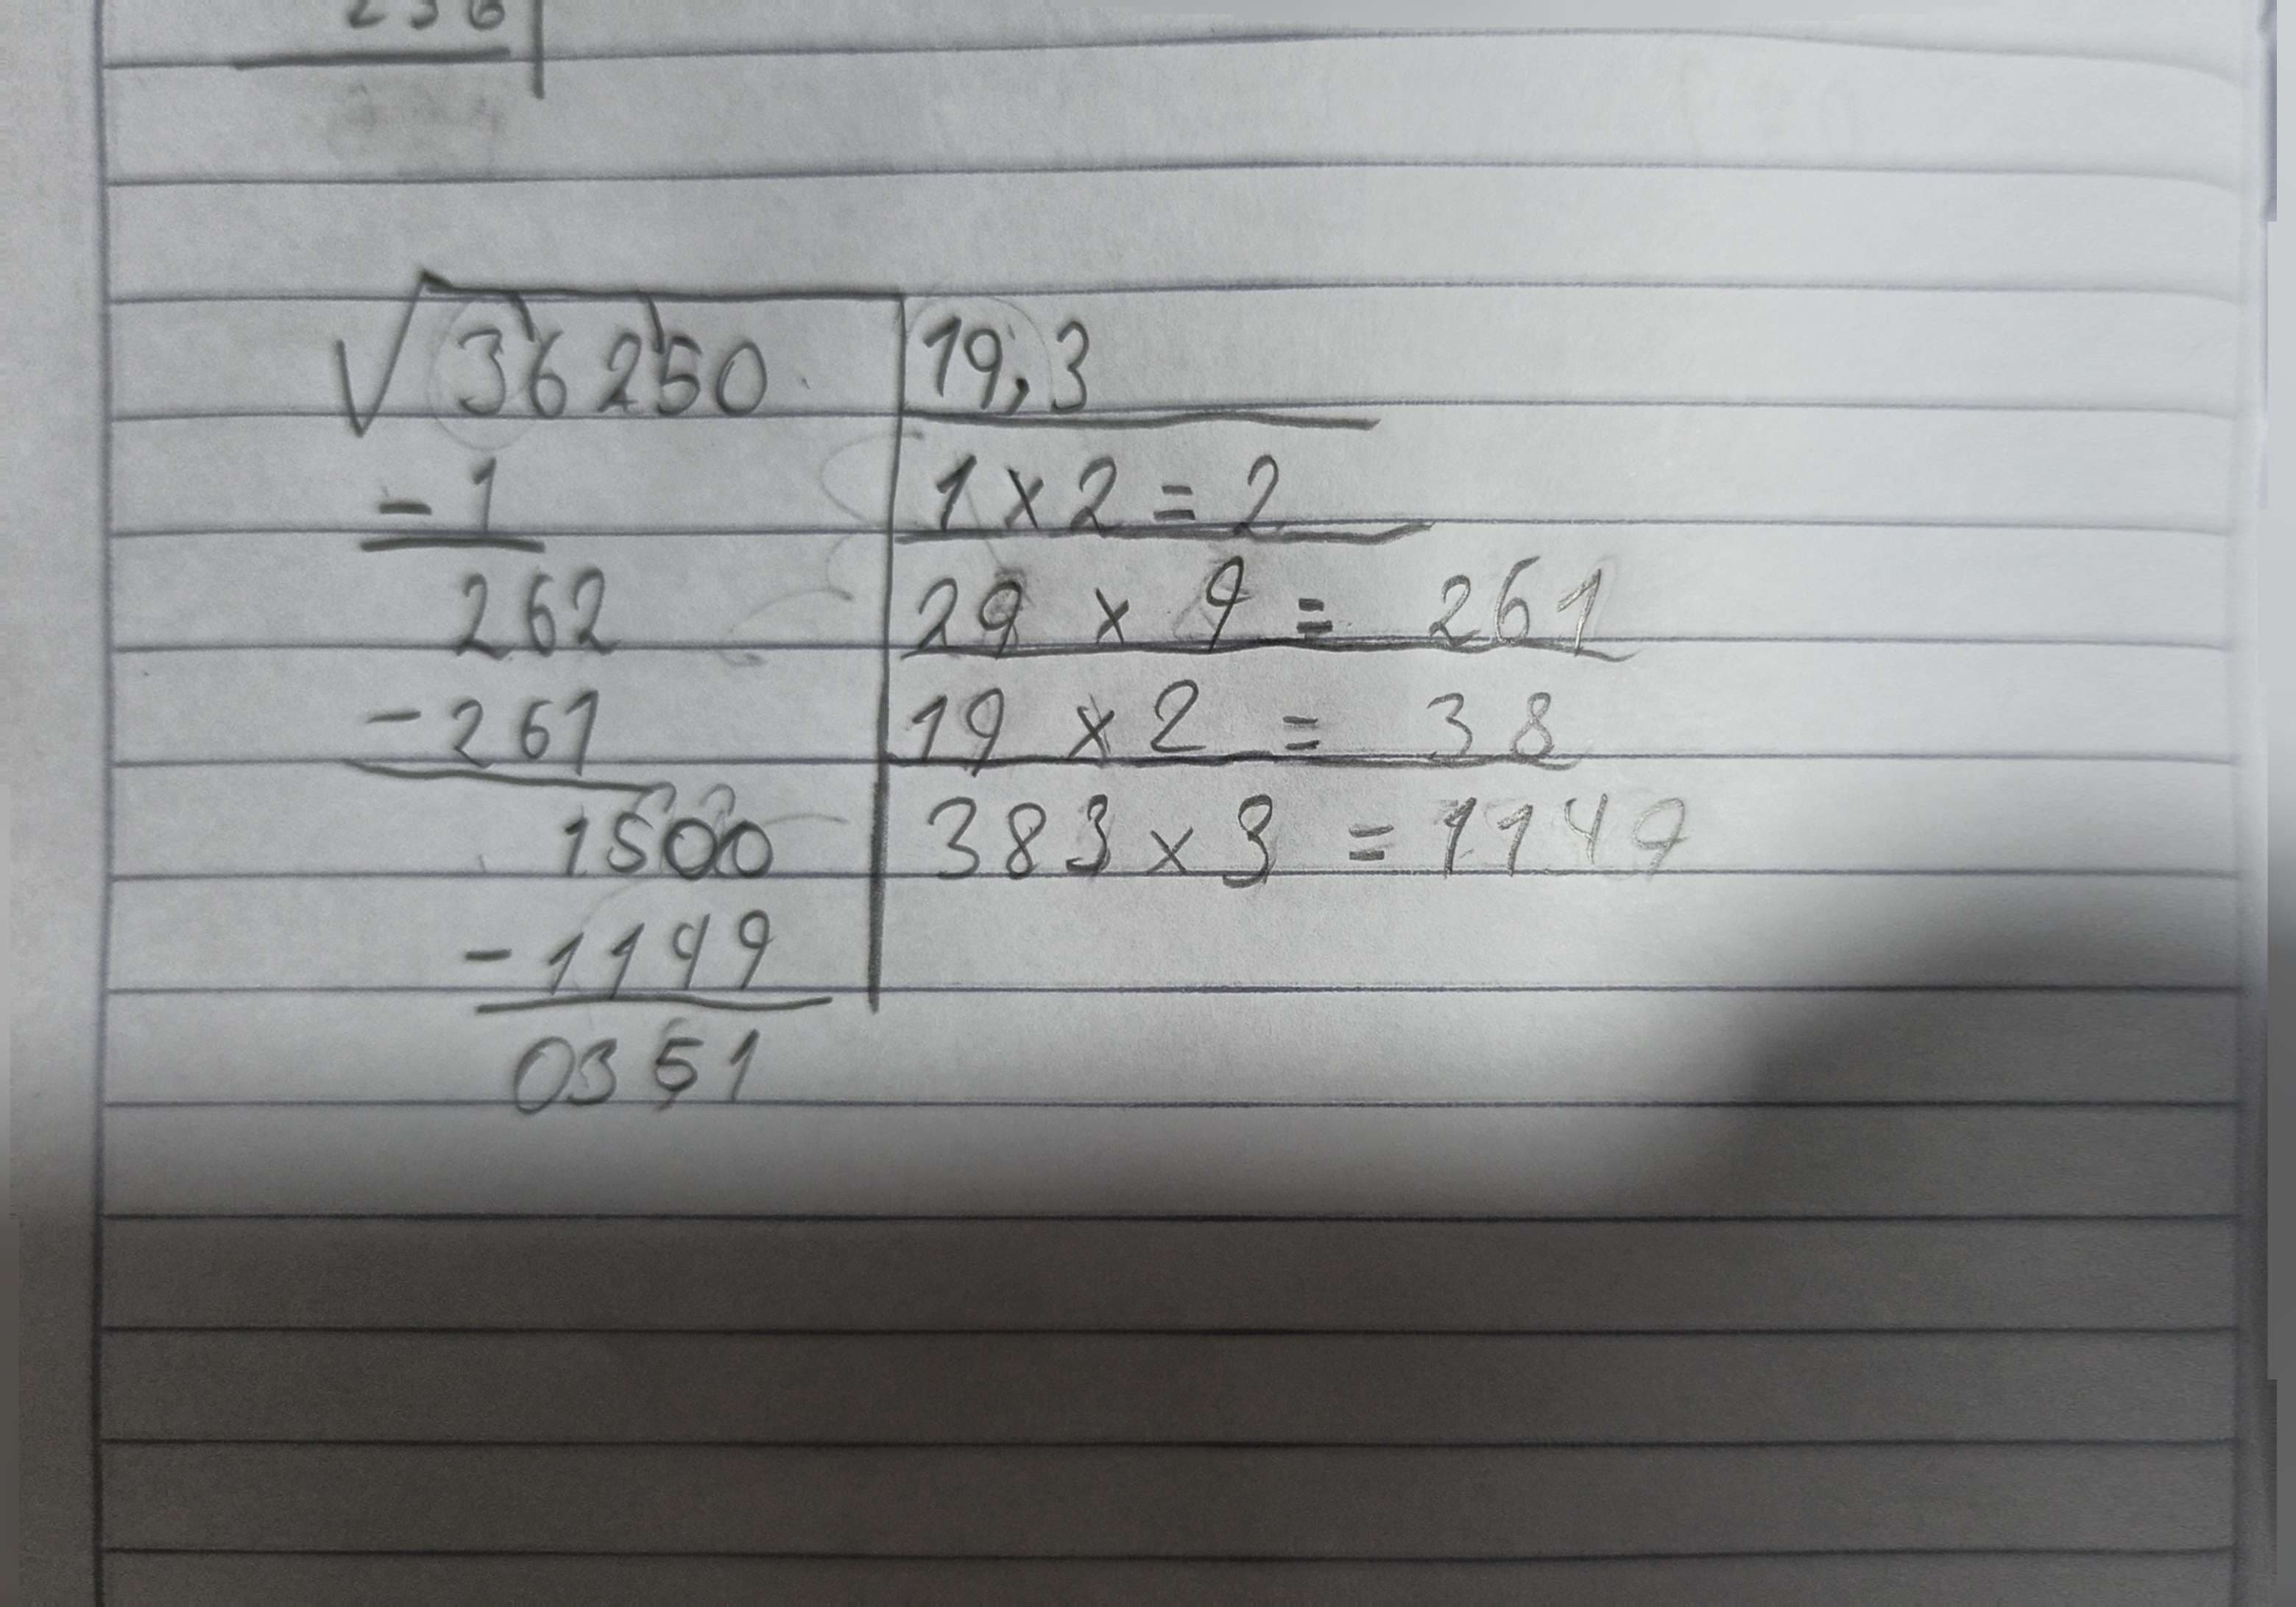 236
√3'62'50 19,3
- 1 1 x 2 = 2
262 29 x 9 = 261
- 261 19 x 2 = 38
1500 383 x 3 = 1149
- 1149
0351